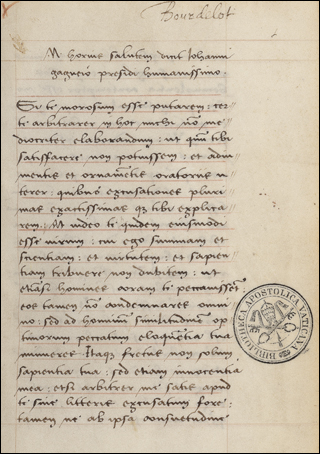 Bourdilot
M horius salutem dicit Iohanni
gagneio presidi humanissimo.
Si te morosum esse putarem: cer-
te arbitrarer in hoc michi nō me
diocriter elaborandum: ut qum tibi
satisfacere non potuissem: et adiu
mentis et ornamētis oratoriis u
terer: quibus excusationes pluri
mas exactissimas qz tibi explica
rem: At video te quidem eiusmodi
esse virum: cui ego summam et
scientiam: et virtutem: et sapien
tiam tribuere non dubitem: ut
etiāsi homines coram te peccaussēt
eos tamen nō condemnares omni
no: sed ad hominū similitudinem op
timorum peccatum eloquētia tua
munires Itaqz fretus non solum
sapientia tua: sed etiam innocentia
mea: etsi arbitrer me satis apud
te sine litteris excusatum fore:
tamen ne ab ipsa consuetudine
BIBLIOTHECA APOSTOLICA VATICANA